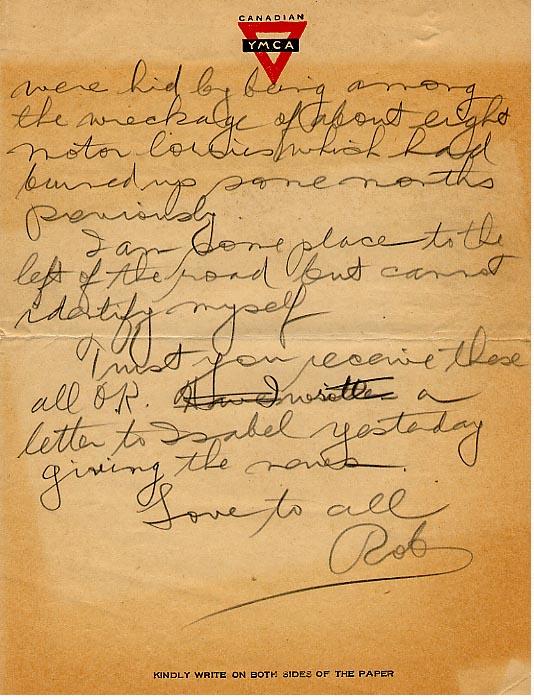 CANADIAN
YMCA
were hid by being among
the wreckage of about eight
motor lorries which had
burned up some months
previously.
I am some place to the
left of the road but cannot
identify myself
Trust you receive these
all O.K. Have I written a
letter to Isabel yesterday
giving the news.
Love to all
Rob
KINDLY WRITE ON BOTH SIDES OF THE PAPER